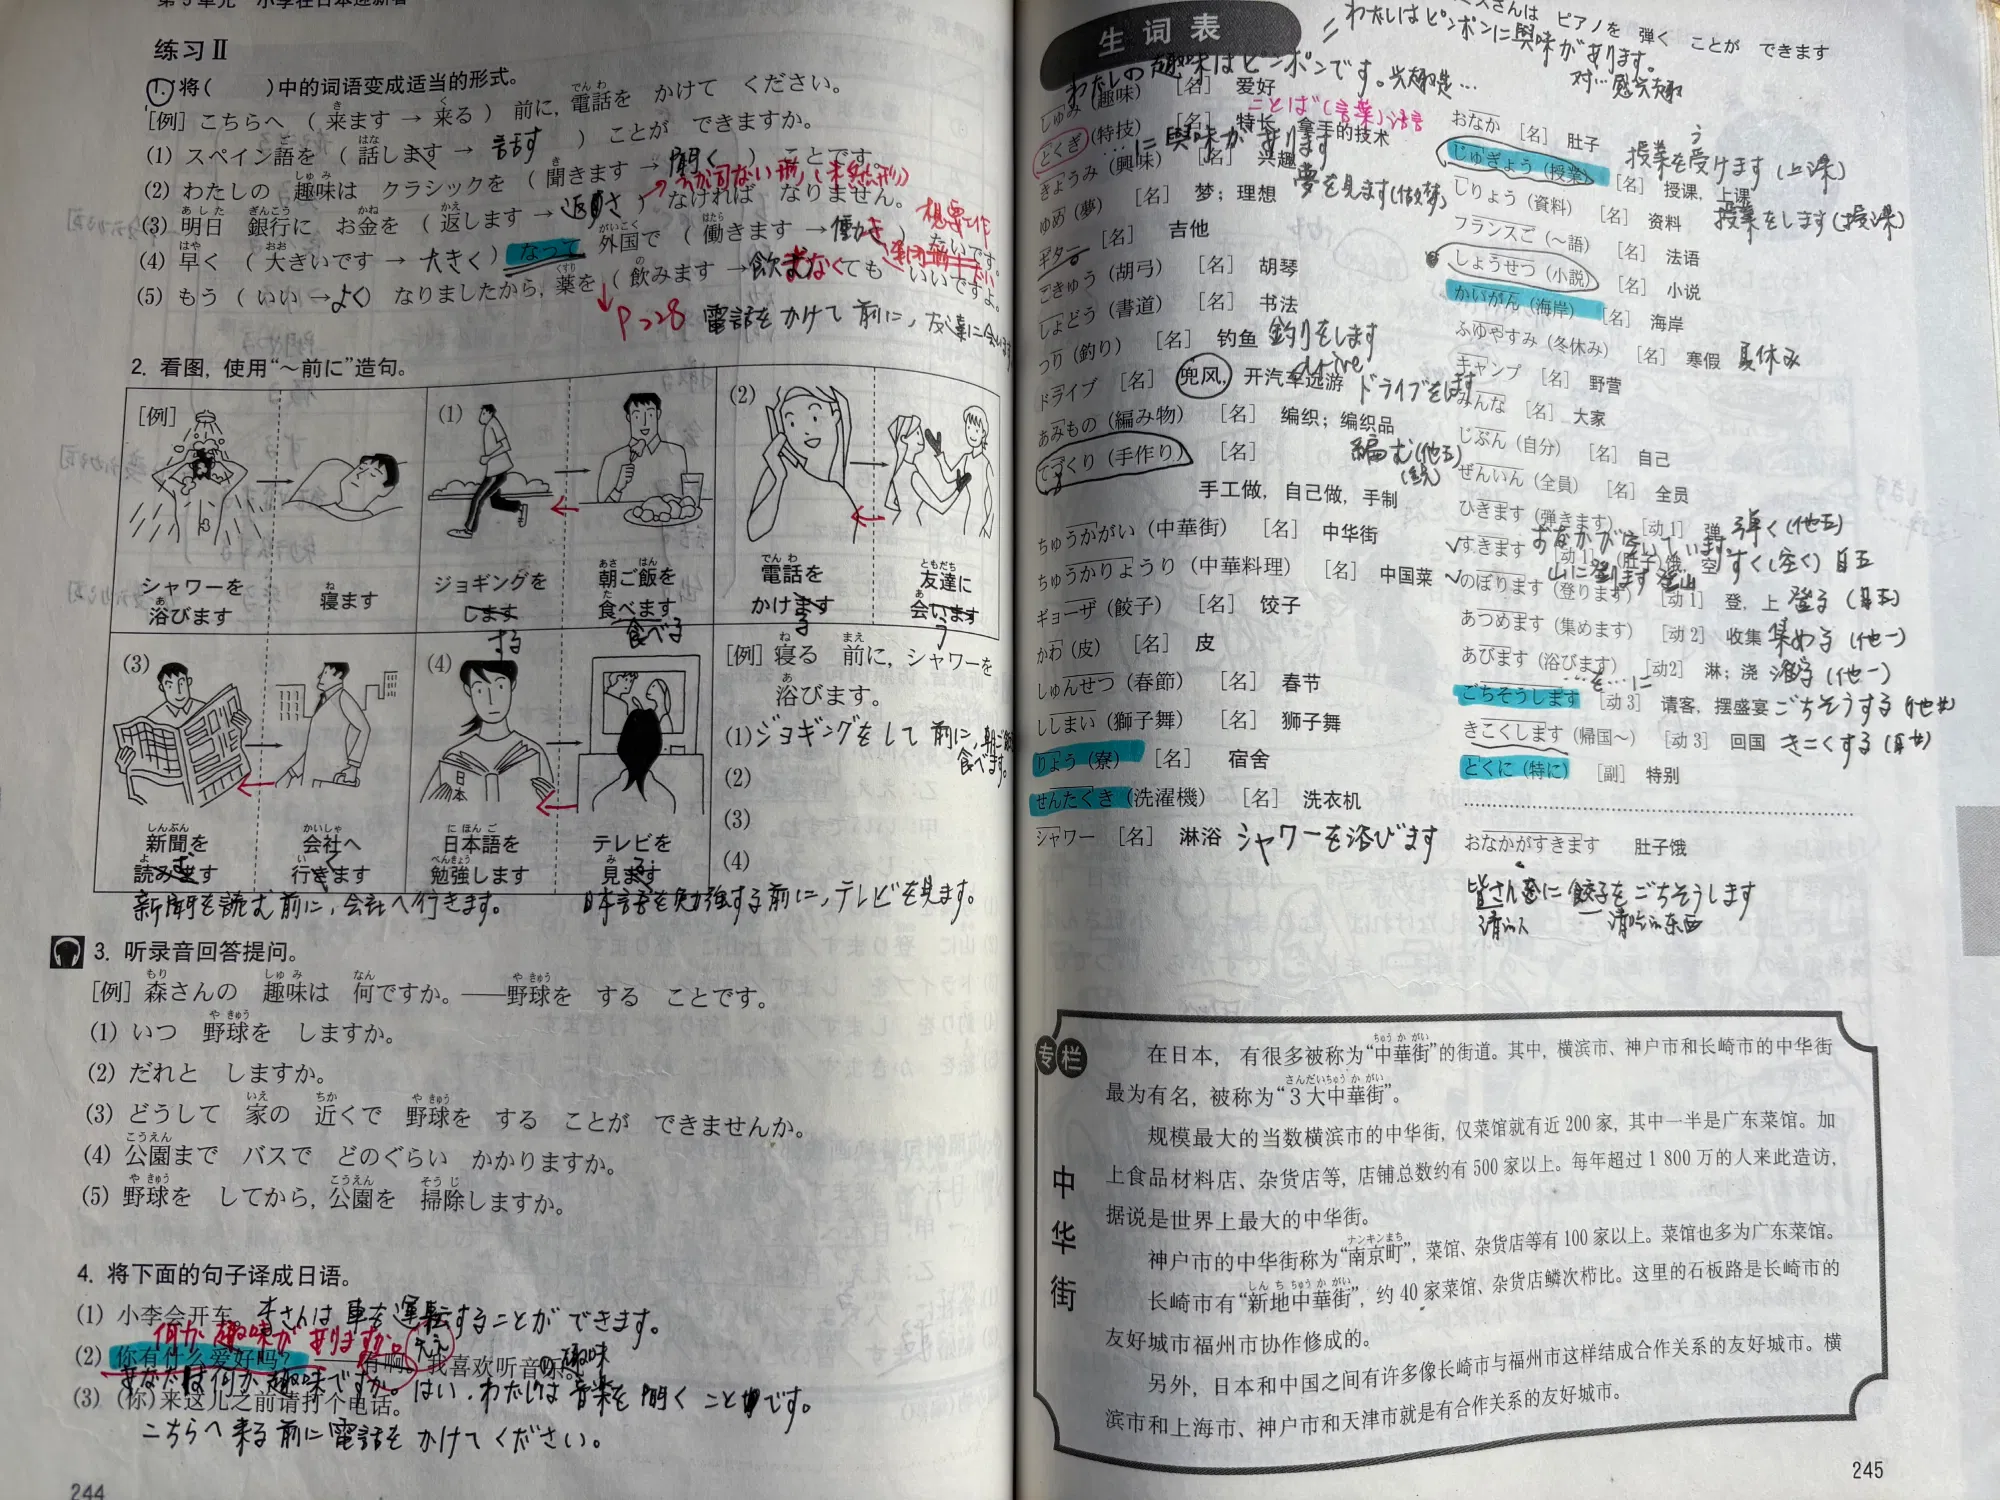 练习Ⅱ
1. 将(　　)中的词语变成适当的形式。
[例] こちらへ (来ます → 来る) 前に, 電話を かけて ください。
(1) スペイン語を (話します → 話す) ことが できますか。
(2) わたしの 趣味は クラシックを (聞きます → 聞く) ことです。
(3) 明日 銀行に お金を (返します → 返さ) なければ なりません。
(4) 早く (大きいです → 大きく) なって 外国で (働きます → 働き) たいです。
(5) もう (いい → よく) なりましたから, 薬を (飲みます → 飲まなくても いいですよ。
P228 電話を かけて 前に, 友達に会い
2. 看图, 使用“～前に”造句。
[例]
シャワーを 浴びます
寝ます
(1)
ジョギングを します
する
朝ご飯を 食べます
食べる
(2)
電話を かけます
る
友達に 会います
う
(3)
新聞を 読みます
む
会社へ 行きます
く
(4)
日本
日本語を 勉強します
テレビを 見ます
る
[例] 寝る 前に, シャワーを
浴びます。
(1) ジョギングをして 前に, 朝ご飯
食べます。
(2)
(3)
(4)
新聞を読む前に, 会社へ行きます。
日本語を勉強する前に, テレビを見ます。
3. 听录音回答提问。
[例] 森さんの 趣味は 何ですか。——野球を する ことです。
(1) いつ 野球を しますか。
(2) だれと しますか。
(3) どうして 家の 近くで 野球を する ことが できませんか。
(4) 公園まで バスで どのぐらい かかりますか。
(5) 野球を してから, 公園を 掃除しますか。
4. 将下面的句子译成日语。
(1) 小李会开车。李さんは 車を運転することができます。
何か 趣味が ありますか。ええ
(2) 你有什么爱好吗? ——有啊, 我喜欢听音乐。
趣味
あなたは何か 趣味ですか。はい, わたしは音楽を 聞く ことです。
(3) (你)来这儿之前请打个电话。
こちらへ来る前に電話を かけてください。
244
生词表
さんは ピアノを 弾く ことが できます
=わたしはピンポンに興味があります。
对…感兴趣
わたしの趣味はピンポンです。兴趣是…
しゅみ (趣味) [名] 爱好
ことば(言葉) 语言
とくぎ (特技) [名] 特长, 拿手的技术
…に興味が あります
きょうみ (興味) [名] 兴趣
ゆめ (夢) [名] 梦; 理想 夢を見ます(做梦)
ギター [名] 吉他
こきゅう (胡弓) [名] 胡琴
しょどう (書道) [名] 书法
つり (釣り) [名] 钓鱼 釣りをします
drive
ドライブ [名] 兜风, 开汽车远游 ドライブをします
あみもの (編み物) [名] 编织; 编织品
編む(他五)
てづくり (手作り) [名]
手工做, 自己做, 手制
ちゅうかがい (中華街) [名] 中华街
ちゅうかりょうり (中華料理) [名] 中国菜
ギョーザ (餃子) [名] 饺子
かわ (皮) [名] 皮
しゅんせつ (春節) [名] 春节
ししまい (獅子舞) [名] 狮子舞
りょう (寮) [名] 宿舍
せんたくき (洗濯機) [名] 洗衣机
シャワー [名] 淋浴 シャワーを浴びます
おなか [名] 肚子
授業を受けます(上课)
じゅぎょう (授業) [名] 授课, 上课
しりょう (資料) [名] 资料 授業をします(授课)
フランスご (～語) [名] 法语
しょうせつ (小説) [名] 小说
かいがん (海岸) [名] 海岸
ふゆやすみ (冬休み) [名] 寒假 夏休み
キャンプ [名] 野营
みんな [名] 大家
じぶん (自分) [名] 自己
ぜんいん (全員) [名] 全员
ひきます (弾きます) [动1] 弹 弾く(他五)
おなかが空いています。
すきます [动1] (肚子)饿, 空 すく(空く) 自五
山に登ります 登山
のぼります (登ります) [动1] 登, 上 登る (自五)
あつめます (集めます) [动2] 收集 集める (他一)
あびます (浴びます) [动2] 淋; 浇 浴びる(他一)
…を…に
ごちそうします [动3] 请客, 摆盛宴 ごちそうする
きこくします (帰国～) [动3] 回国 きこくする
とくに (特に) [副] 特别
おなかがすきます 肚子饿
皆さんに 餃子をごちそうします
请的人 请吃的东西
专栏
中华街
在日本, 有很多被称为“中華街”的街道。其中, 横滨市、神户市和长崎市的中华街
最为有名, 被称为“3大中華街”。
规模最大的当数横滨市的中华街, 仅菜馆就有近200家, 其中一半是广东菜馆。加
上食品材料店、杂货店等, 店铺总数约有500家以上。每年超过1 800万的人来此造访,
据说是世界上最大的中华街。
神户市的中华街称为“南京町”, 菜馆、杂货店等有100家以上。菜馆也多为广东菜馆。
长崎市有“新地中華街”, 约40家菜馆、杂货店鳞次栉比。这里的石板路是长崎市的
友好城市福州市协作修成的。
另外, 日本和中国之间有许多像长崎市与福州市这样结成合作关系的友好城市。横
滨市和上海市、神户市和天津市就是有合作关系的友好城市。
245